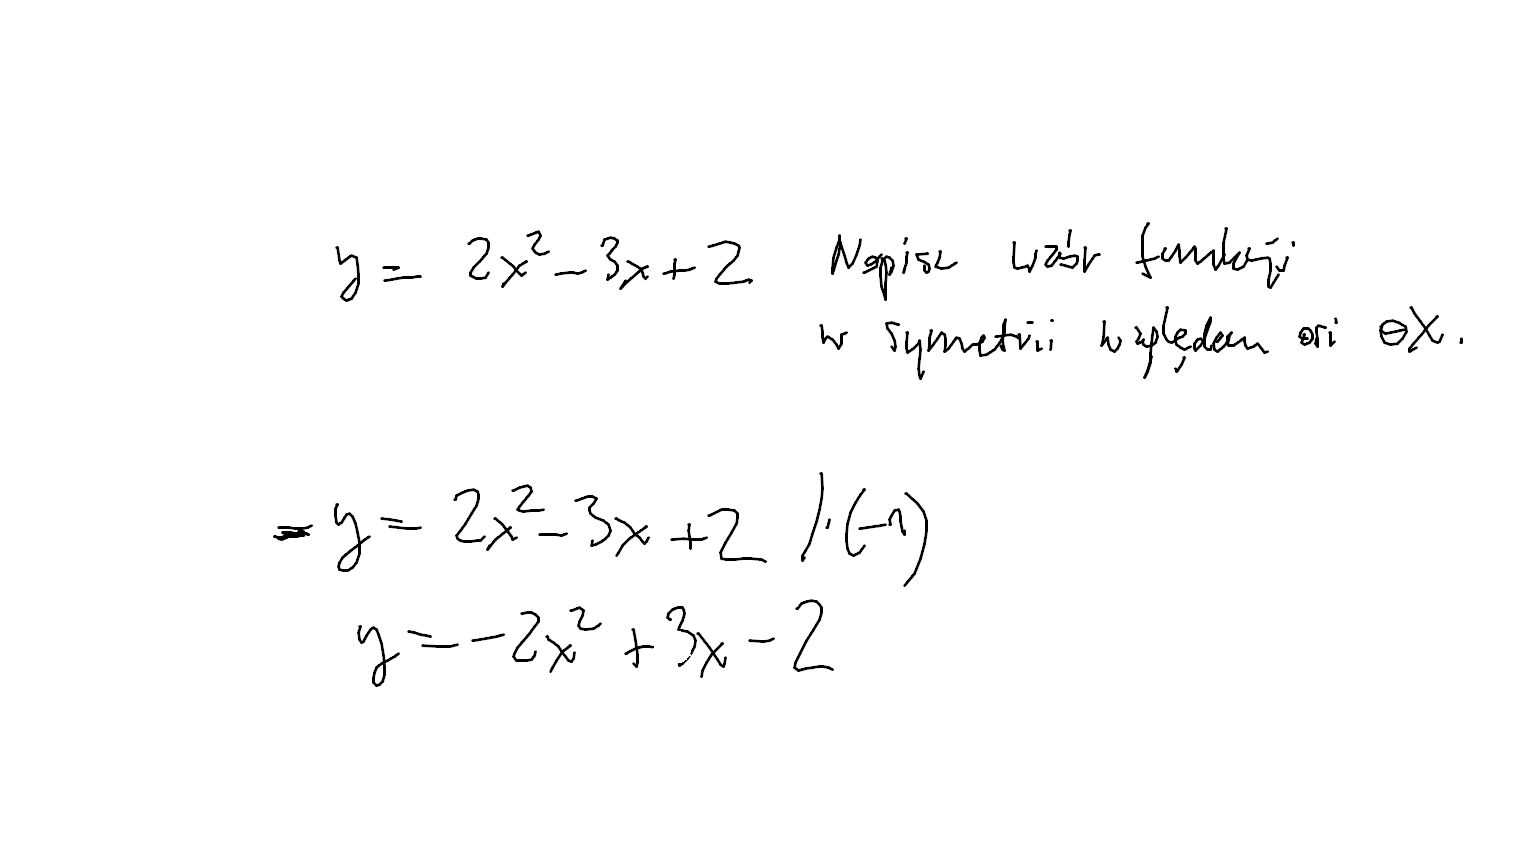 y = 2x² - 3x + 2 Napisz wzór funkcji
w symetrii względem osi OX.
- y = 2x² - 3x + 2 /·(-1)
y = - 2x² + 3x - 2